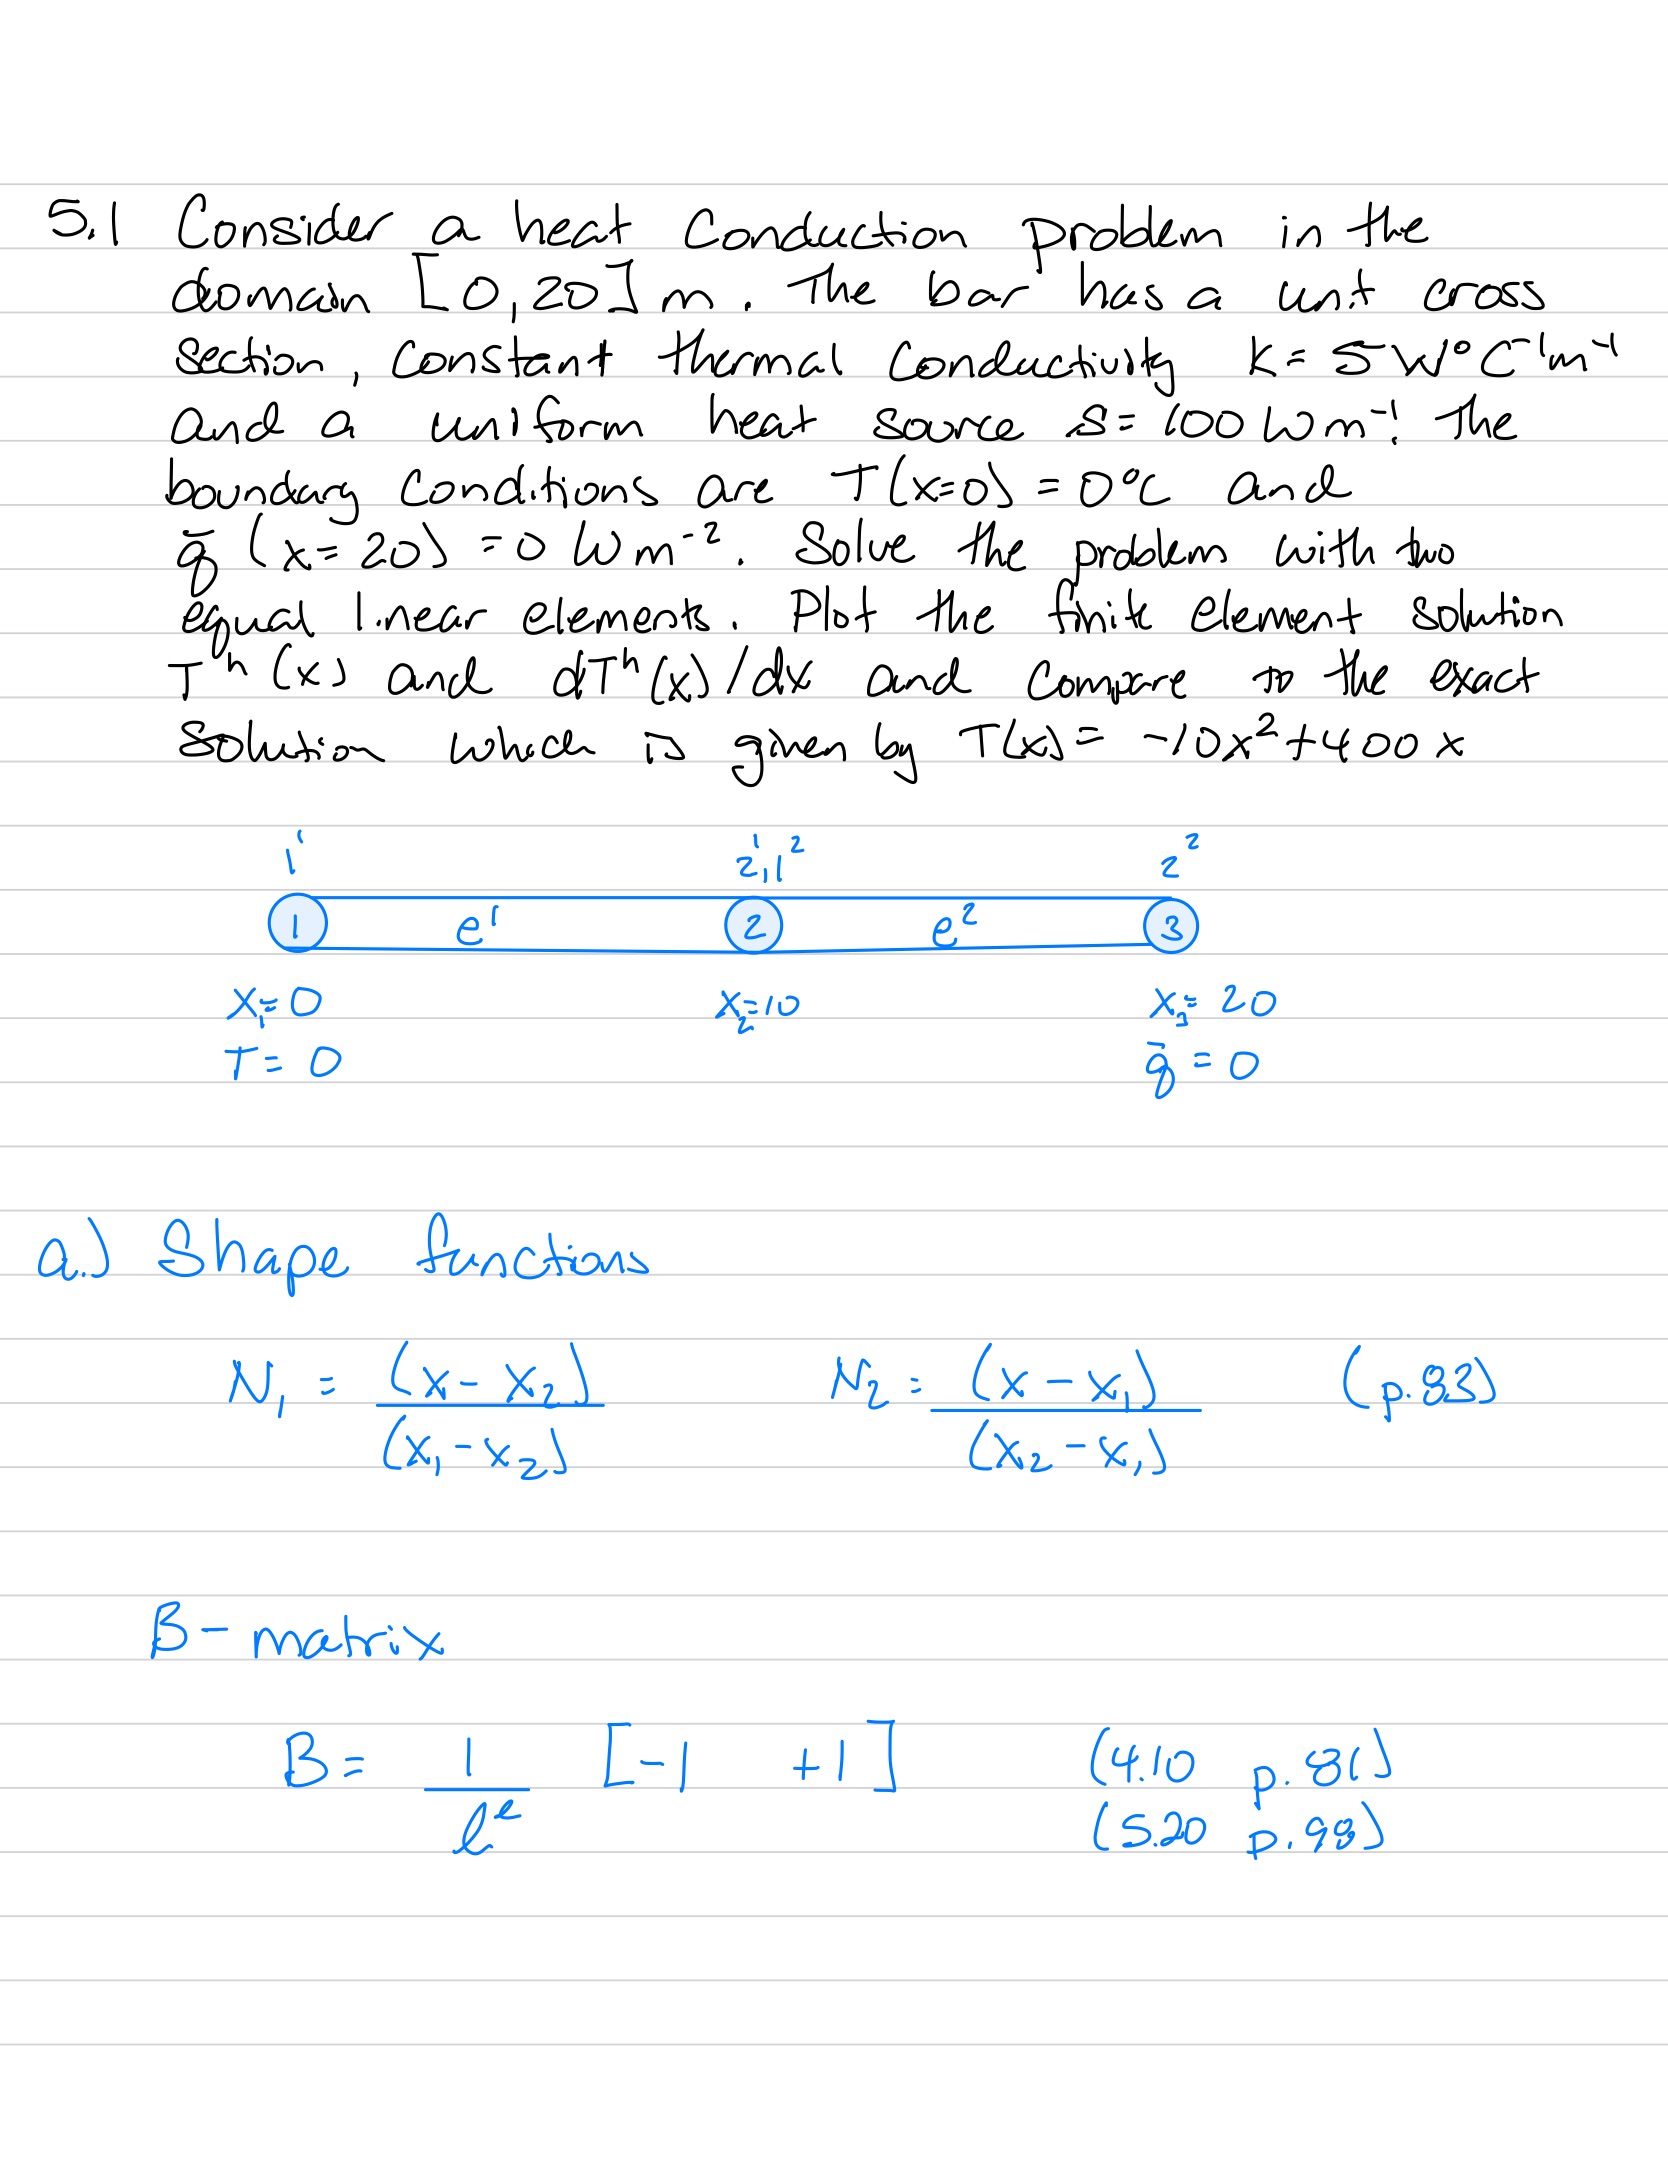 5.1 Consider a heat conduction problem in the
domain [0, 20] m. The bar has a unit cross
section, constant thermal conductivity k = 5 W°C⁻¹m⁻¹
and a uniform heat source s = 100 W m⁻¹. The
boundary conditions are T(x=0) = 0°C and
q̄ (x=20) = 0 W m⁻². Solve the problem with two
equal linear elements. Plot the finite element solution
Tʰ(x) and dTʰ(x)/dx and compare to the exact
solution which is given by T(x) = -10x² + 400x
1¹ 2¹,1² 2²
1 e¹ 2 e² 3
x₁=0 x₂=10 x₃=20
T=0 q̄=0
a.) Shape functions
N₁ = (x-x₂)/(x₁-x₂) N₂ = (x-x₁)/(x₂-x₁) (p.83)
B-matrix
B = 1/lᵉ [-1 +1] (4.10 p.81)
(5.20 p.98)